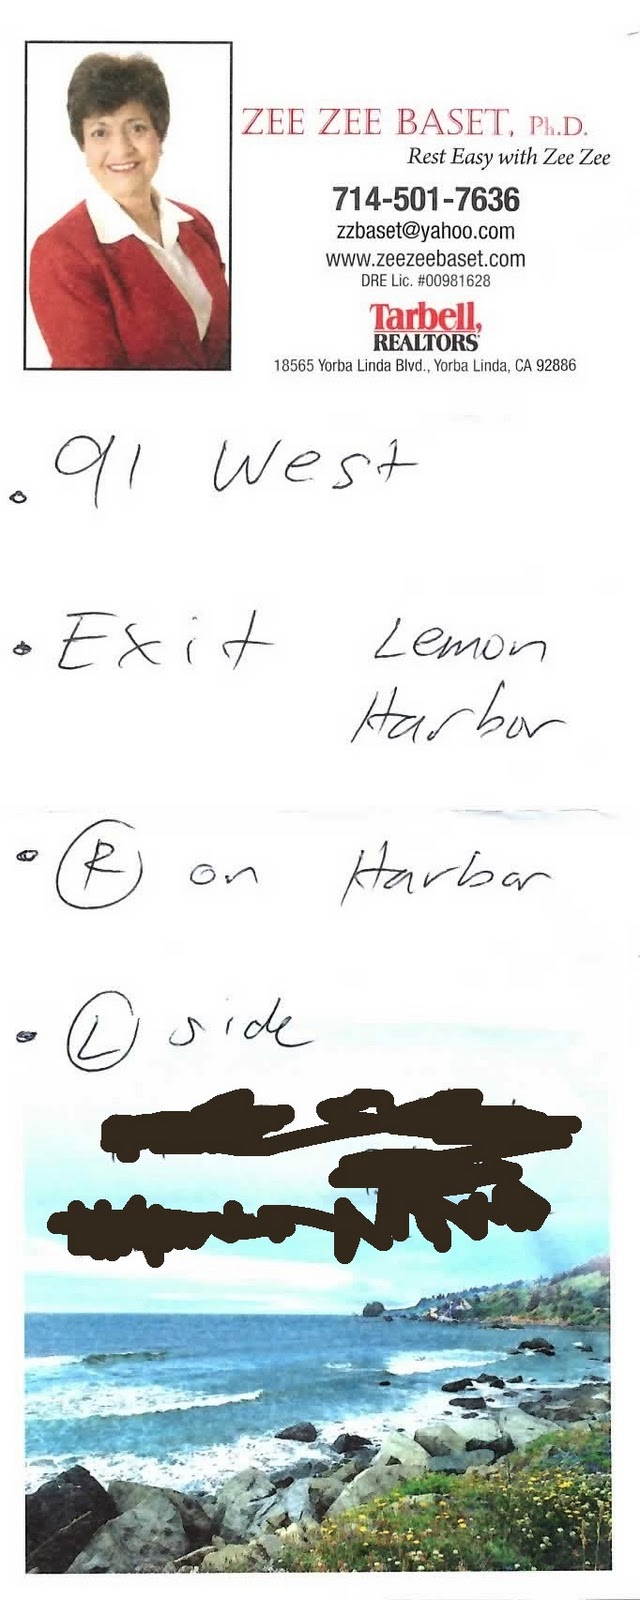 ZEE ZEE BASET, Ph.D.
Rest Easy with Zee Zee
714-501-7636
zzbaset@yahoo.com
www.zeezeebaset.com
DRE Lic. #00981628
Tarbell,
REALTORS
18565 Yorba Linda Blvd., Yorba Linda, CA 92886
91 West
Exit Lemon
Harbor
R on Harbor
L side